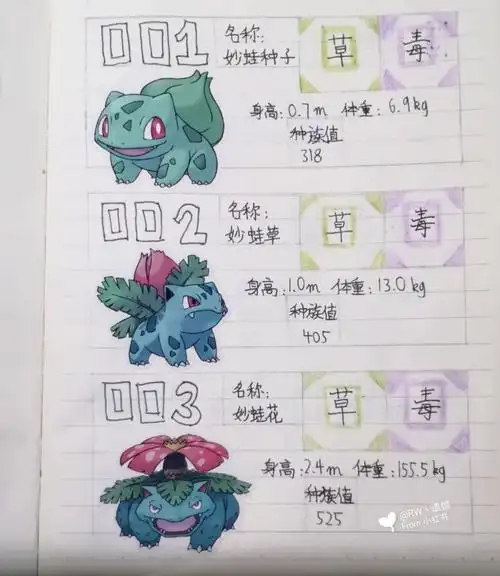 001
名称:
妙蛙种子
草
毒
身高:0.7m 体重:6.9kg
种族值
318
002
名称:
妙蛙草
草
毒
身高:1.0m 体重:13.0kg
种族值
405
003
名称:
妙蛙花
草
毒
身高:2.4m 体重:155.5kg
种族值
525
From 小红书